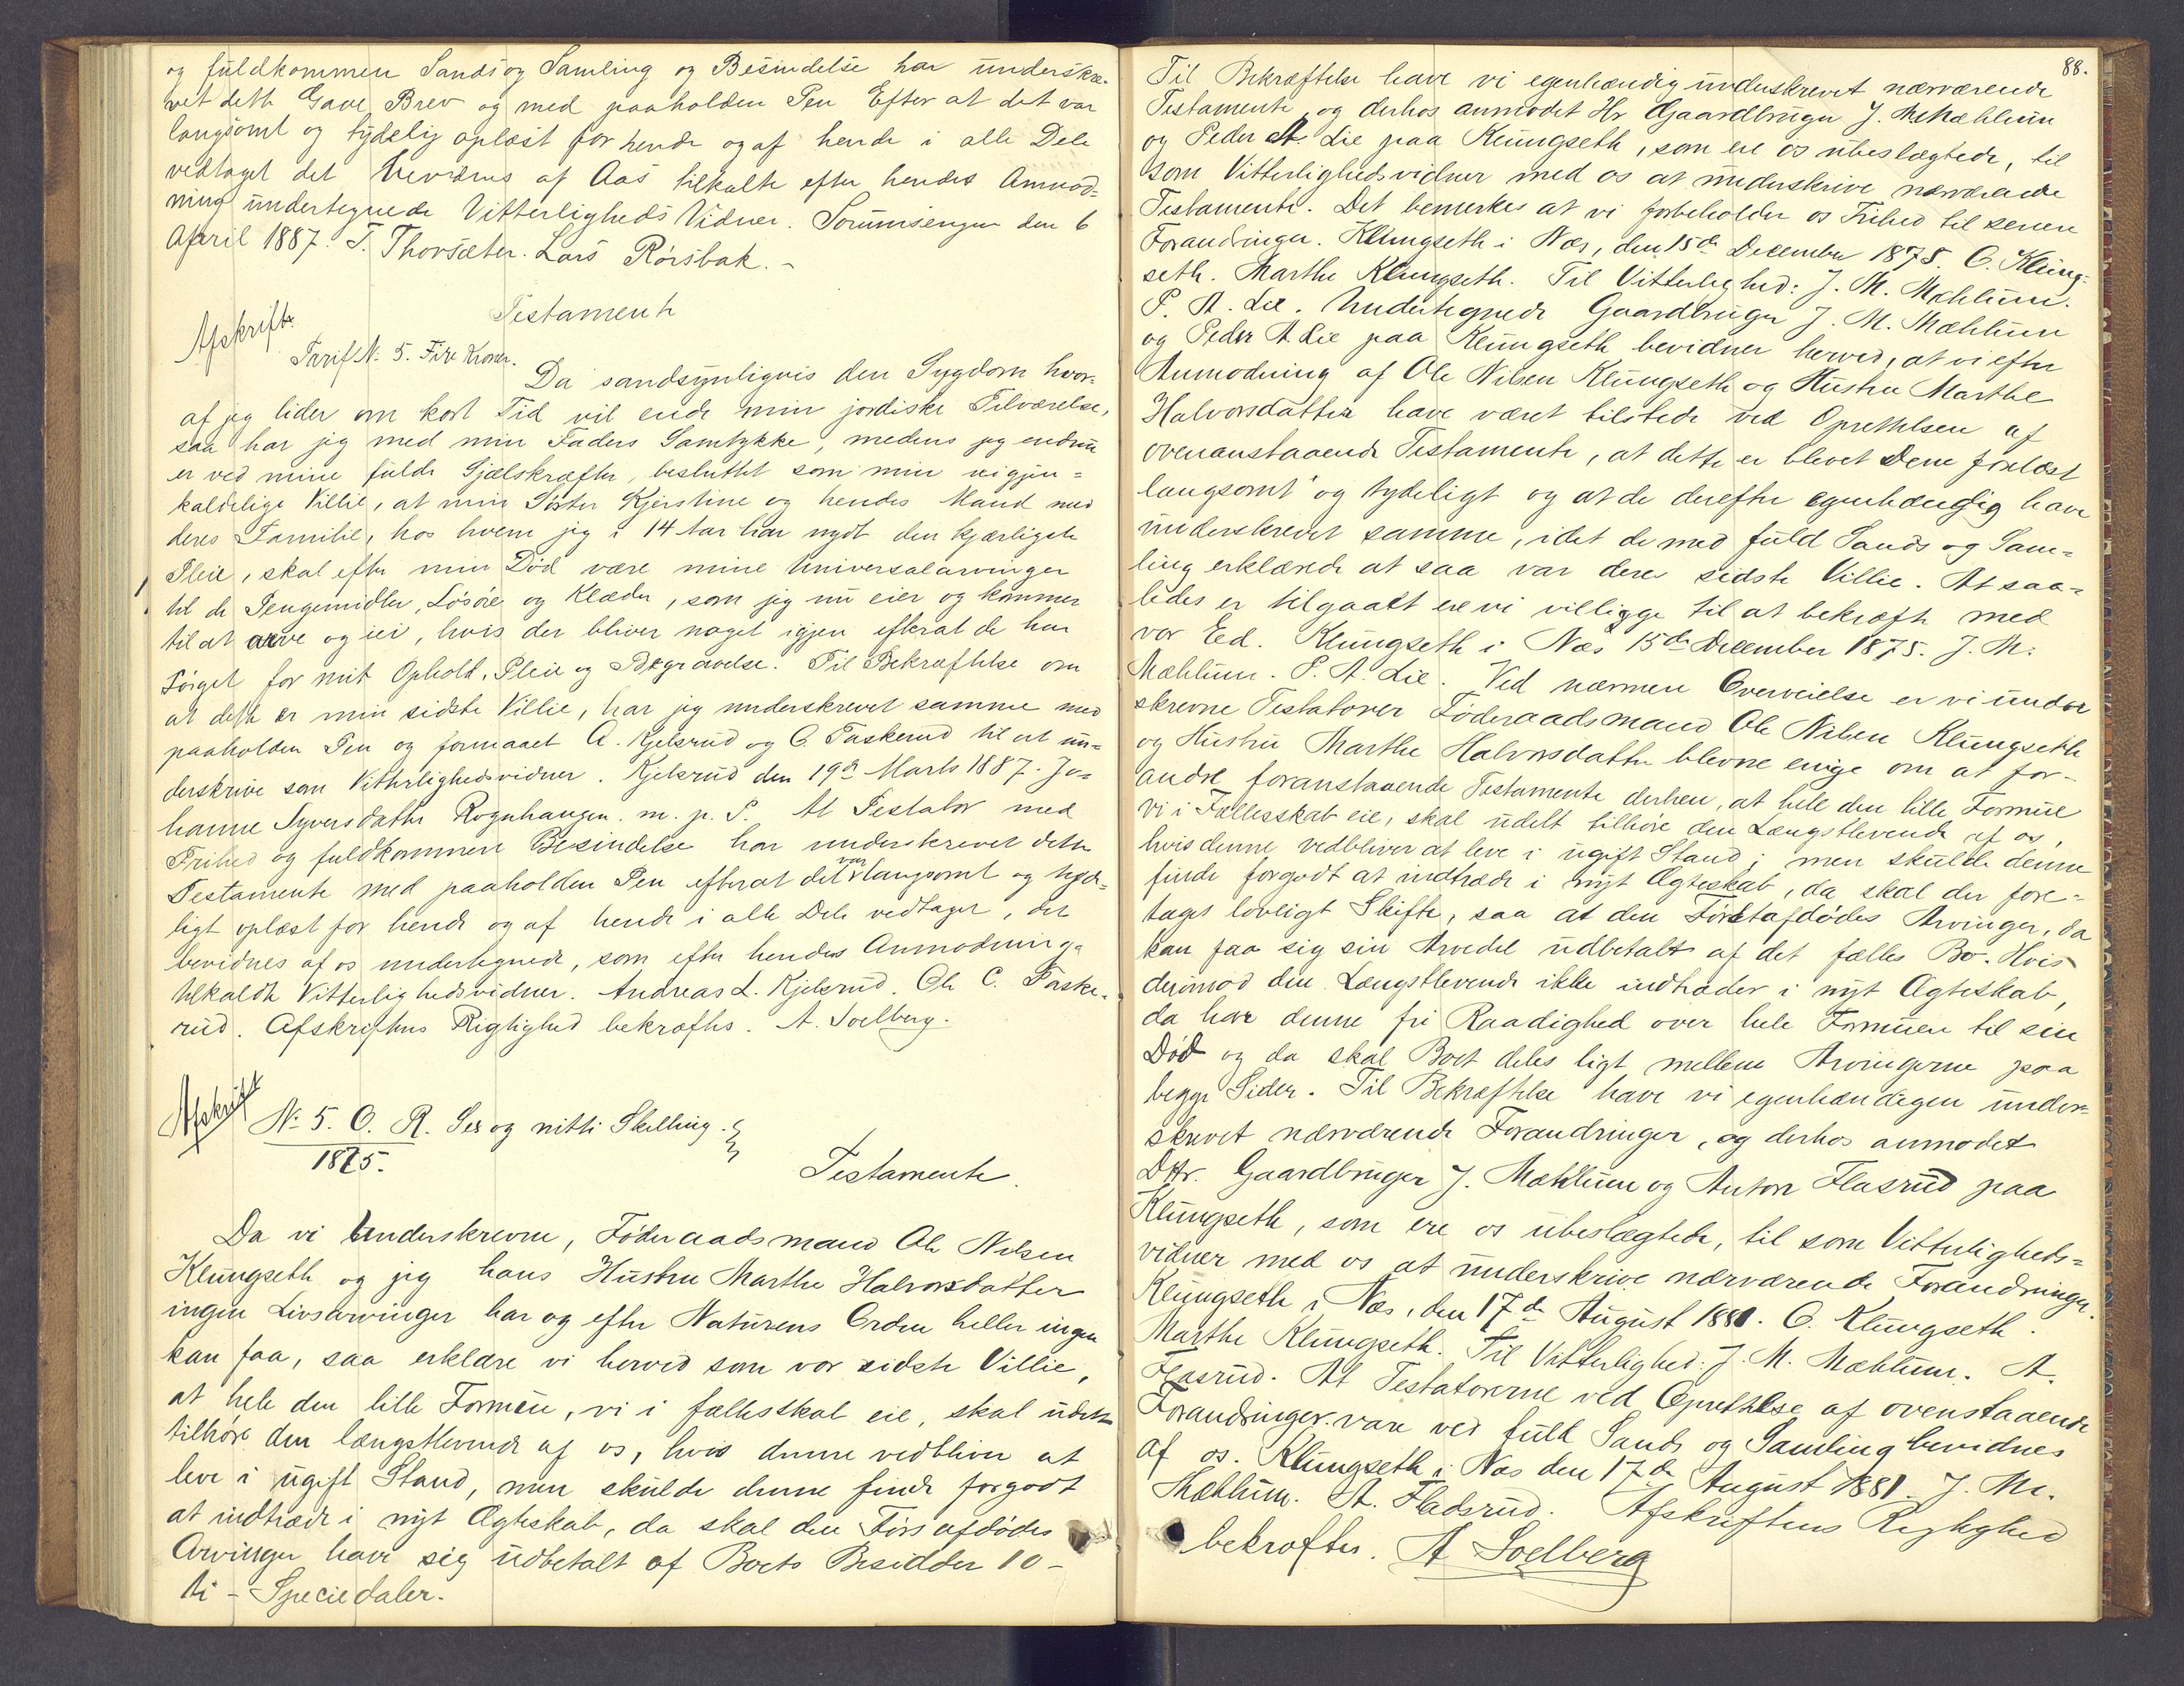 og fuldkommen Sands og Samling og Besindelse har underskre-
vet dette Gave Brev og med paaholden Pen Efter at det var
langsomt og tydelig oplæst for hende og af hende i alle Dele
vedtaget det bevidnes af Aas tilkalte efter hendes Anmod-
ning undertegnede Vitterligheds Vidner. Sorumsengen den 6
April 1887. T. Thorsæter. Lars Rörsbak. -
Afskrift. Testament
Tarif N. 5. Fire Kroner.
Da sandsynligvis den Sygdom hvor-
af jeg lider om kort Tid vil ende min jordiske Tilværelse,
saa har jeg med min Faders Samtykke, medens jeg endnu
er ved mine fulde Sjælskræfter, besluttet som min uigjen=
kaldelige Villie, at min Søster Kjerstine og hendes Mand med
deres Familie, hos hvem jeg i 14 Aar har nydt den kjærligste
Pleie, skal efter min Død være mine Universalarvinger
til de Pengemidler, Løsøre og Klæder, som jeg nu eier og kommer
til at arve og eie, hvis der bliver noget igjen efterat de har
sørget for mit Ophold, Pleie og Begravelse. Til Bekræftelse om
at dette er min sidste Villie, har jeg underskrevet samme med
paaholden Pen og formaaet A. Kjelsrud og O. Taskerud til at un=
derskrive som Vitterlighedsvidner. Kjelsrud den 19de Marts 1887. Jo-
hanne Syversdatter Rognhaugen. m. p. P. At Testator med
Frihed og fuldkommen Besindelse har underskrevet dette
Testamente med paaholden Pen efterat det var langsomt og tyde=
ligt oplæst for hende og af hende i alle Dele vedtaget, det
bevidnes af os undertegnede, som efter hendes Anmodning
tilkaldte Vitterlighedsvidner. Andreas L. Kjelsrud. Ole C. Taske-
rud. Afskriftens Rigtighed bekræftes. A. Soelberg.
Afskrift N: 5. O. R. Ses og nitti Skelling.
1875.
Testamente.
Da vi Underskrevne, Føderaadsmand Ole Nilsen
Klungseth og jeg hans Hustru Marthe Halvorsdatter
ingen Livsarvinger har og efter Naturens Orden heller ingen
kan faa, saa erklære vi herved som vor sidste Villie,
at hele den lille Formue, vi i fællesskab eie, skal udelt
tilhøre den længstlevende af os, hvis denne vedbliver at
leve i ugift Stand, men skulde denne finde forgodt
at indtræde i nyt Ægteskab, da skal den Førstafdødes
Arvinger have sig udbetalt af Boets Besidder 10-
ti - Speciedaler.
88.
Til Bekræftelse have vi egenhændig underskrevet nærværende
Testamente, og derhos anmodet Hr Gaardbruger J. M. Mæhlum
og Peder A. Lie paa Klungseth, som ere os ubeslægtede, til
som Vitterlighedsvidner med os at underskrive nærværende
Testamente. Det bemerkes at vi forbeholder os Frihed til senere
Forandringer. Klungseth i Næs, den 15de December 1875. O. Klung-
seth. Marthe Klungseth. Til Vitterlighed: J. M. Mæhlum.
P. A. Lie. Undertegnede Gaardbruger J. M. Mæhlum
og Peder A. Lie paa Klungseth bevidner herved, at vi efter
Anmodning af Ole Nilsen Klungseth og Hustru Marthe
Halvorsdatter have været tilstede ved Oprettelsen af
ovenanstaaende Testamente, at dette er blevet Dem forelæst
langsomt og tydeligt og at de derefter egenhændig have
underskrevet samme, idet de med fuld Sands og Sam=
ling erklærede at saa var deres sidste Villie. At saa=
ledes er tilgaaet ere vi villigge til at bekræfte med
vor Eed. Klungseth i Næs 15de December 1875. J. M.
Mæhlum. P. A. Lie. Ved nærmere Overveielse er vi under
skrevne Testatorer Føderaadsmand Ole Nilsen Klungseth
og Hustru Marthe Halvorsdatter blevne enige om at for-
andre foranstaaende Testamente derhen, at hele den lille Formue
vi i Fællesskab eie, skal udelt tilhøre den Længstlevende af os,
hvis denne vedbliver at leve i ugift Stand; men skulde denne
finde forgodt at indtræde i nyt Ægteskab, da skal der fore-
tages lovligt Skifte, saa at den Førstafdødes Arvinger, da
kan faa sig sin Arvedel udbetalt af det fælles Bo. Hvis
derimod den Længstlevende ikke indtræder i nyt Ægteskab,
da har denne fri Raadighed over hele Formuen til sin
Død og da skal Boet deles ligt mellem Arvingerne paa
begge Sider. Til Bekræftelse have vi egenhændigen under=
skrevet nærværende Forandringer, og derhos anmodet
DHr. Gaardbruger J. Mæhlum og Anton Flasrud paa
Klungseth, som ere os ubeslægtede, til som Vitterligheds=
vidner med os at underskrive nærværende Forandringer.
Klungseth i Næs, den 17de August 1881. O. Klungseth.
Marthe Klungseth. Til Vitterlighed: J. M. Mæhlum. A.
Flasrud. At Testatorerne ved Oprettelse af ovenstaaende
Forandringer vare ved fuld Sands og Samling bevidnes
af os. Klungseth i Næs den 17de August 1881. J. M.
Mæhlum. A. Fladsrud. Afskriftens Rigtighed
bekræftes. A Soelberg